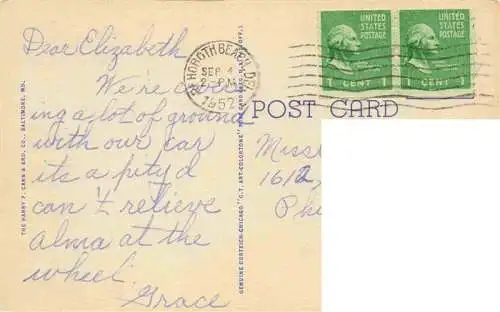 Dear Elizabeth
We're cover
ing a lot of ground
with our car
its a pity I
can't relieve
Alma at the
wheel.
Grace
REHOBOTH BEACH, DEL.
SEP 4
2 - PM
1952
UNITED STATES POSTAGE
1 CENT 1
UNITED STATES POSTAGE
1 CENT 1
POST CARD
Miss
1612,
Phi
THE HARRY P. CANN & BRO. CO., BALTIMORE, MD.
GENUINE CURTEICH-CHICAGO "C.T. ART-COLORTONE" POST CARD (REG. U.S. PAT. OFF.)